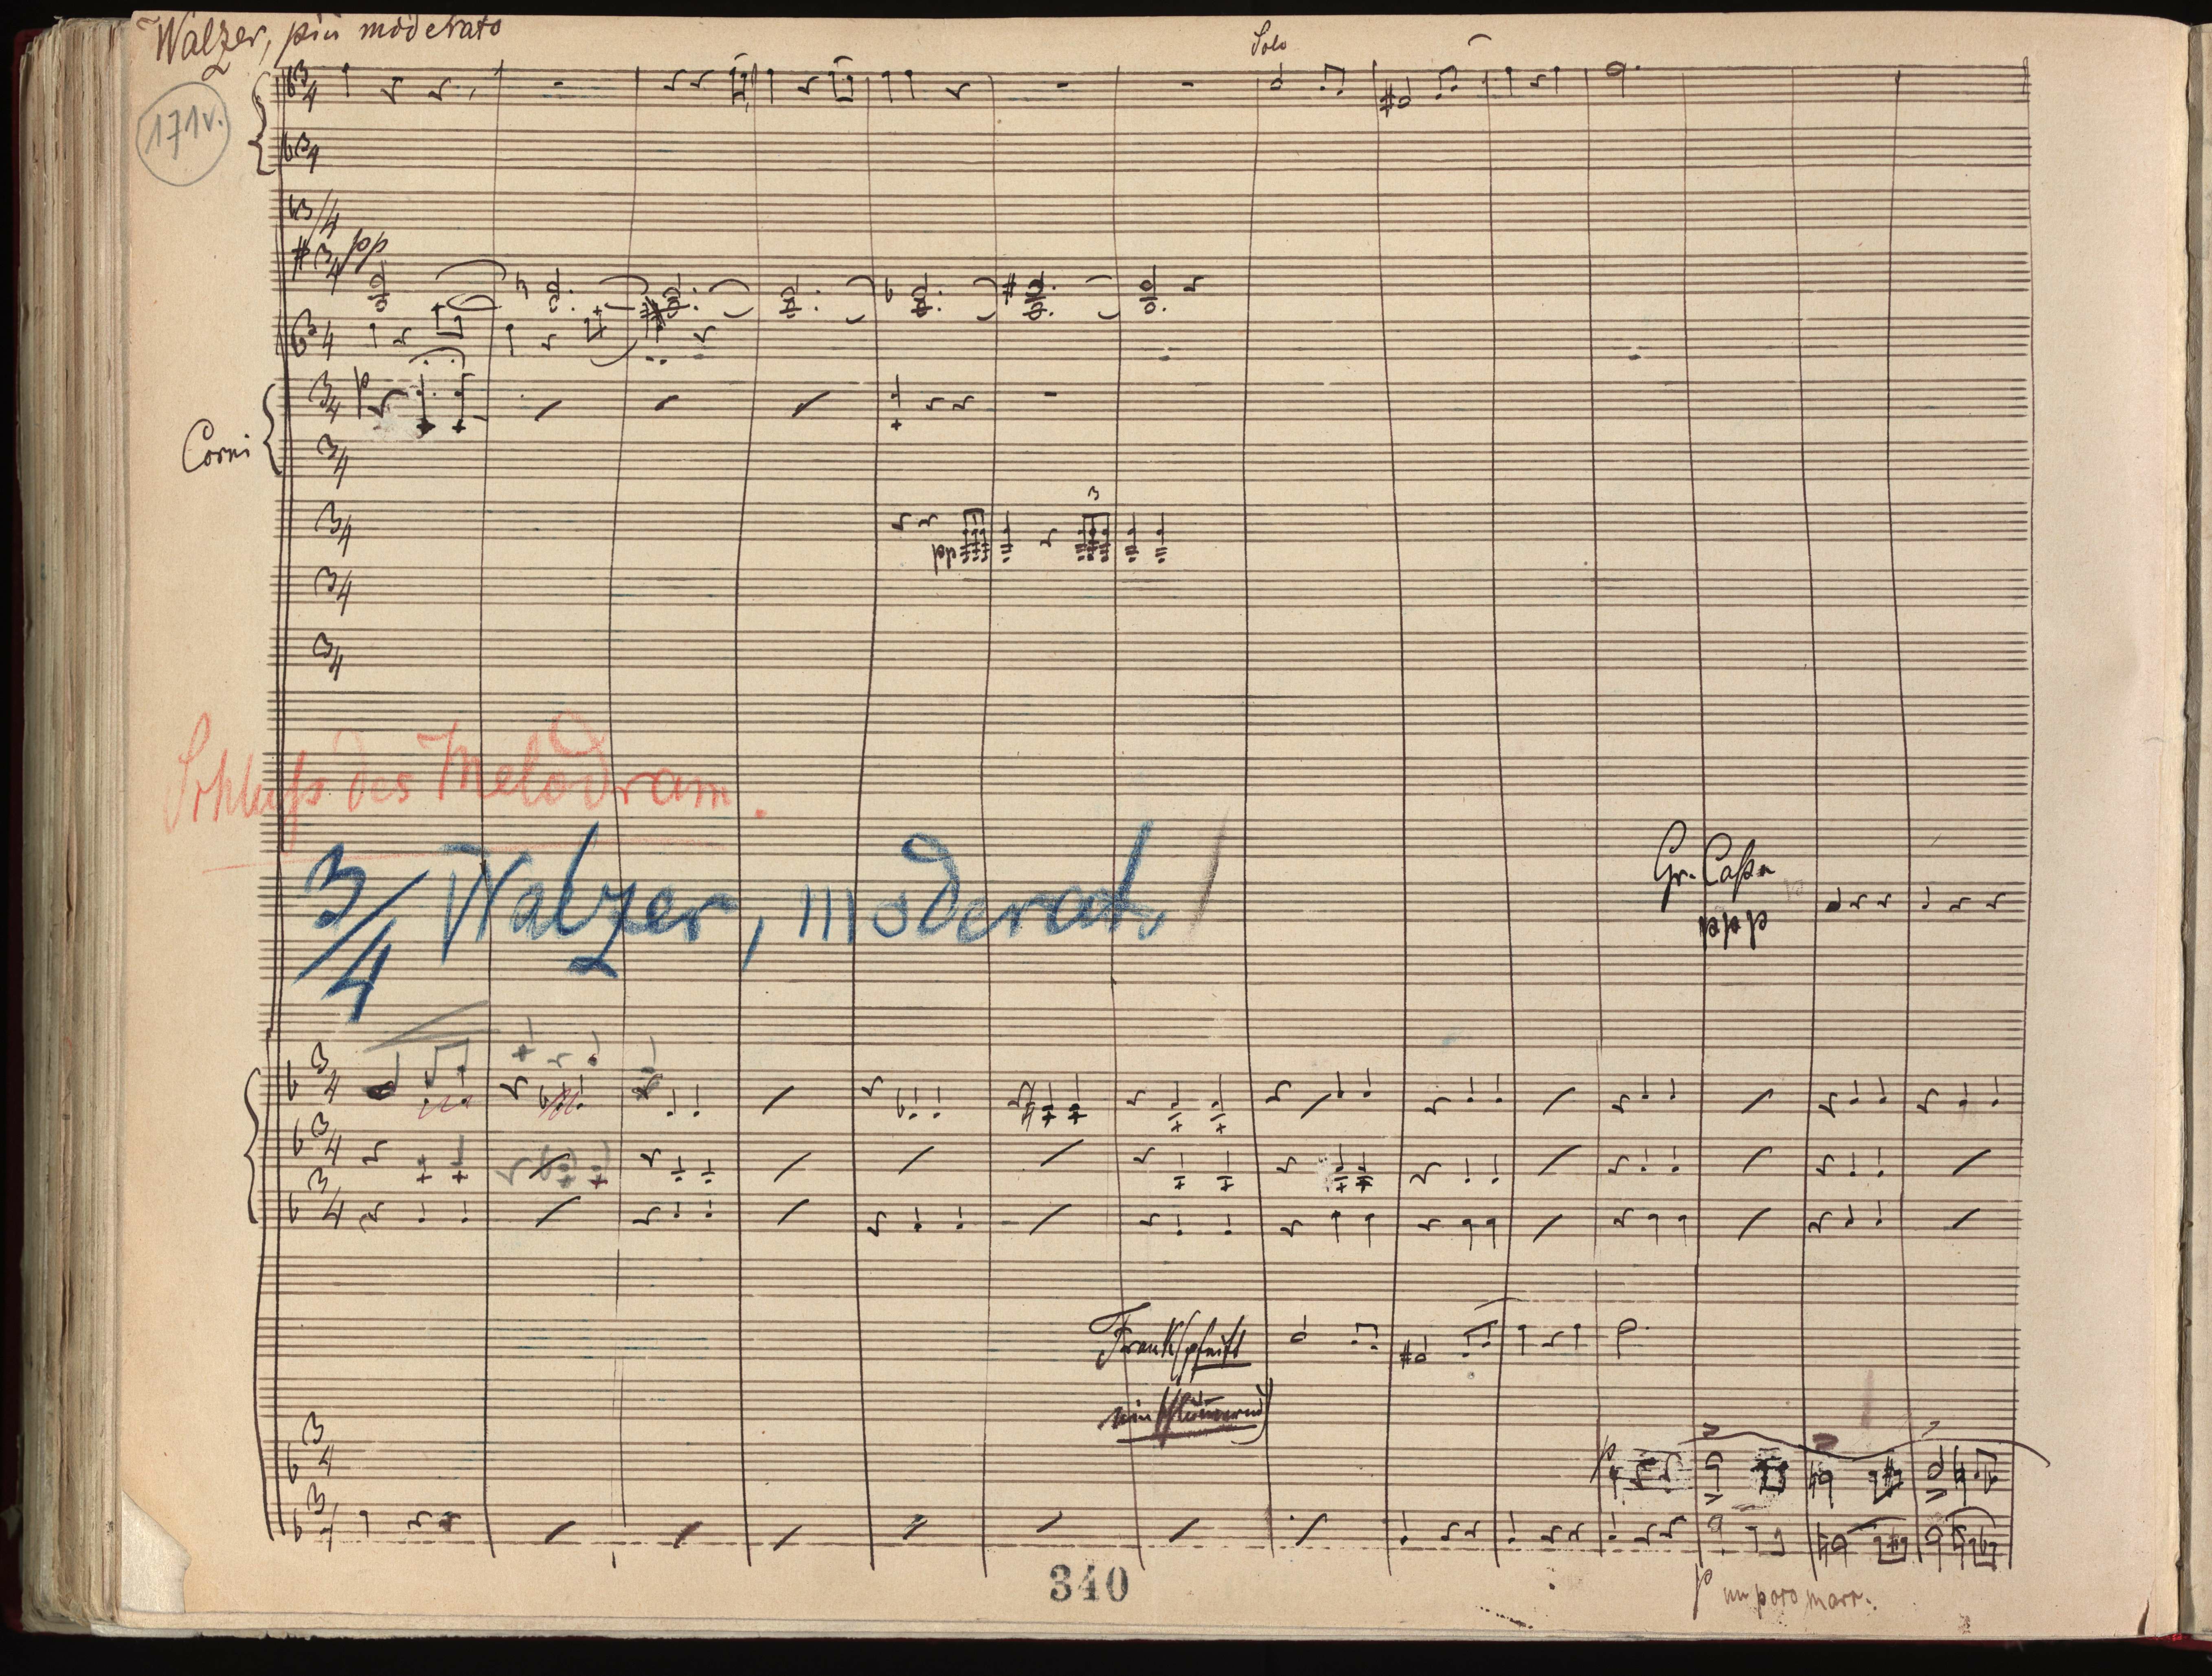 Walzer, più moderato
Solo
171v.
pp
p
Corni
3
pp
Schluß des Melodram.
3/4 Walzer, moderato
Gr. Cassa
ppp
Frank (pfeift
p
340
p un poco marc.